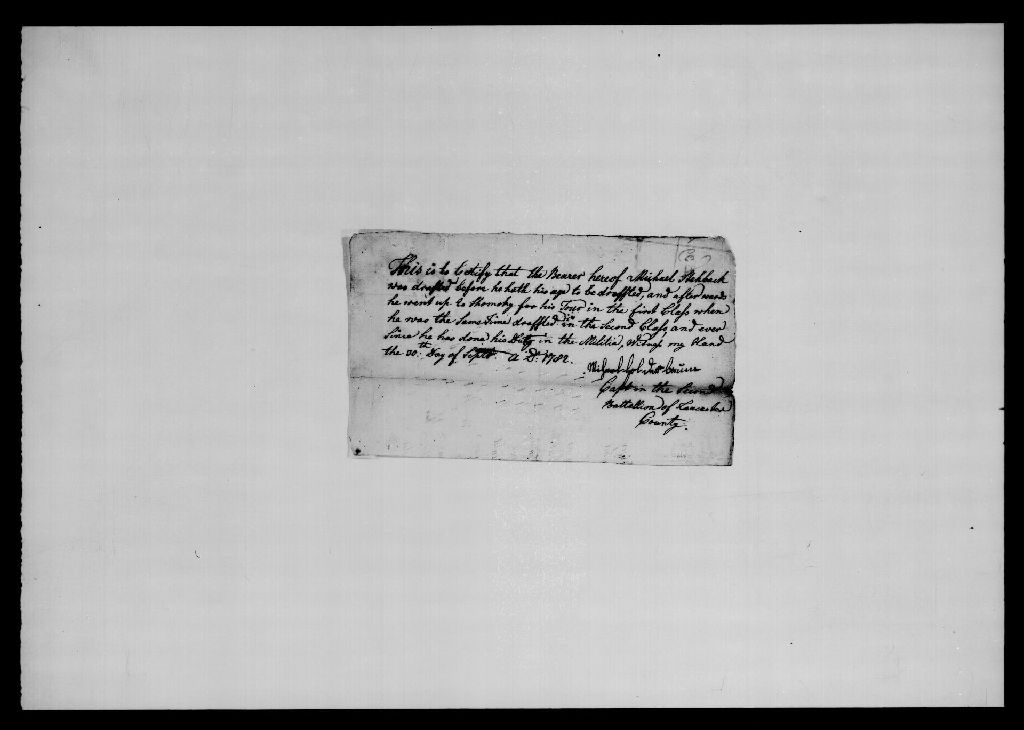 This is to Certify that the Bearer hereof Michael
was drafted before he hath his age to be draffted, and afterwards
he went up to for his Tour in the first Class when
he was the Same Time draffted in the Second Class and ever
Since he has done his Duty in the Militia, Witness my Hand
the 30th Day of Septr A D. 1782.
Capt in the Second
Battellion of Lancaster
County.